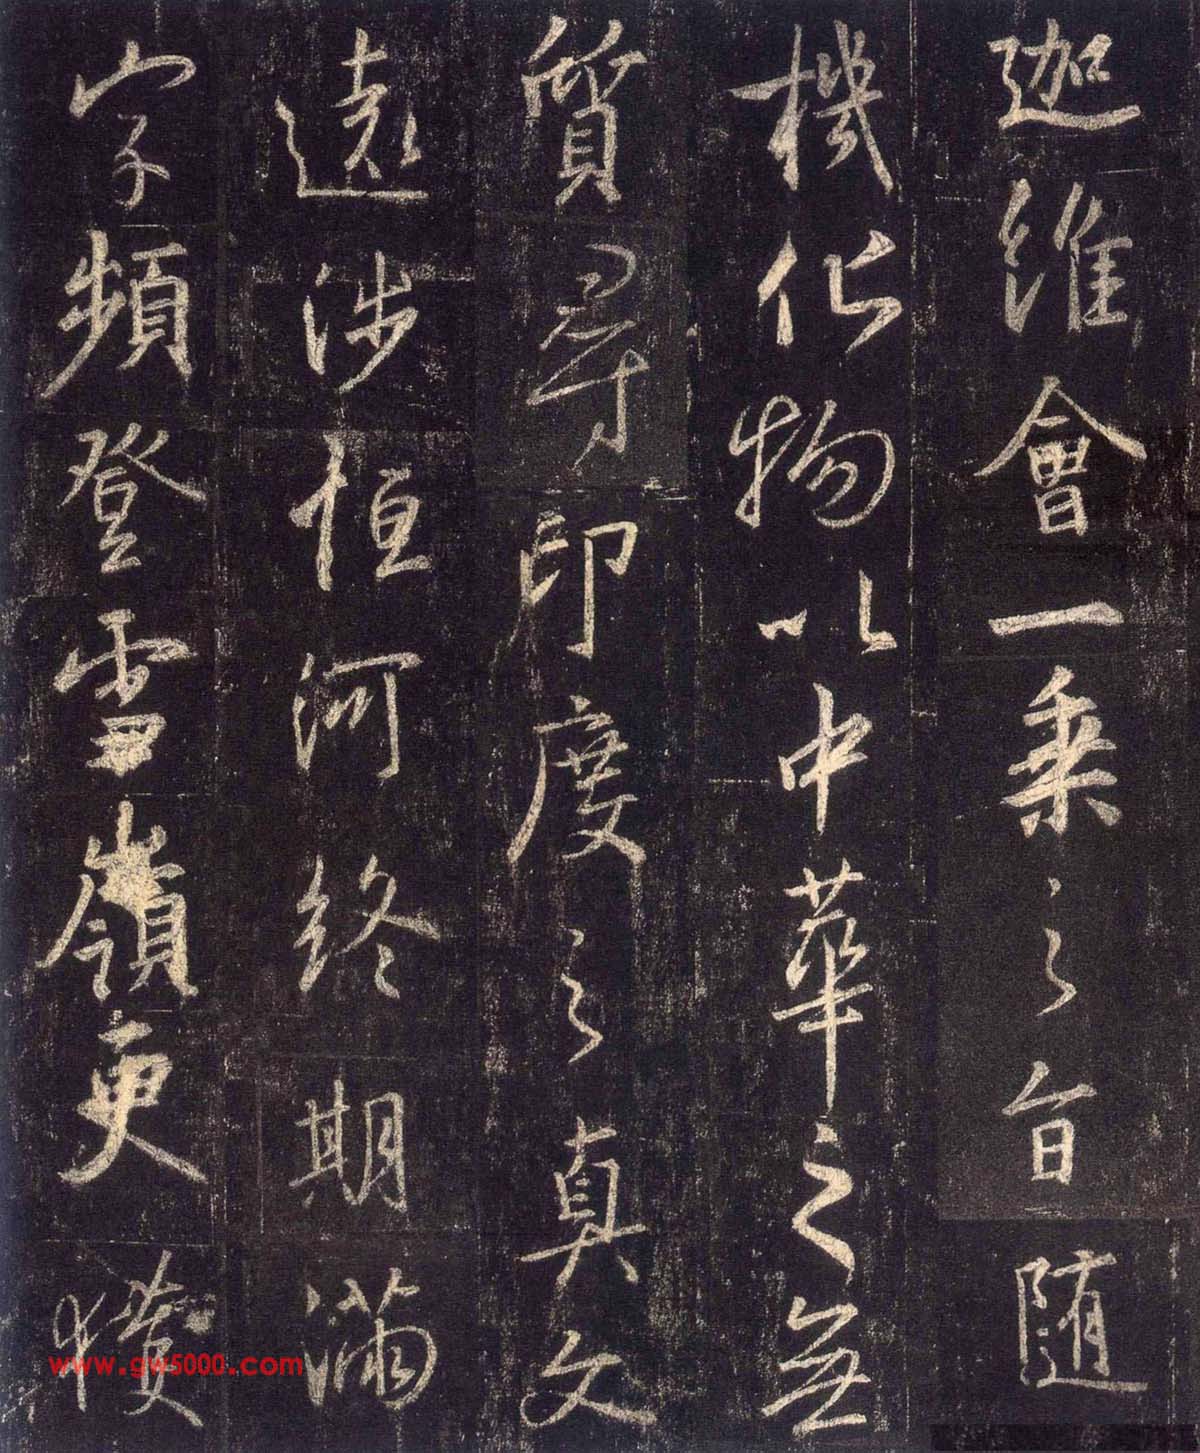 迦維會一乘之旨随
機化物以中華之無
質尋印度之真文
遠涉恒河終期滿
字頻登雪嶺更獲
www.gw5000.com